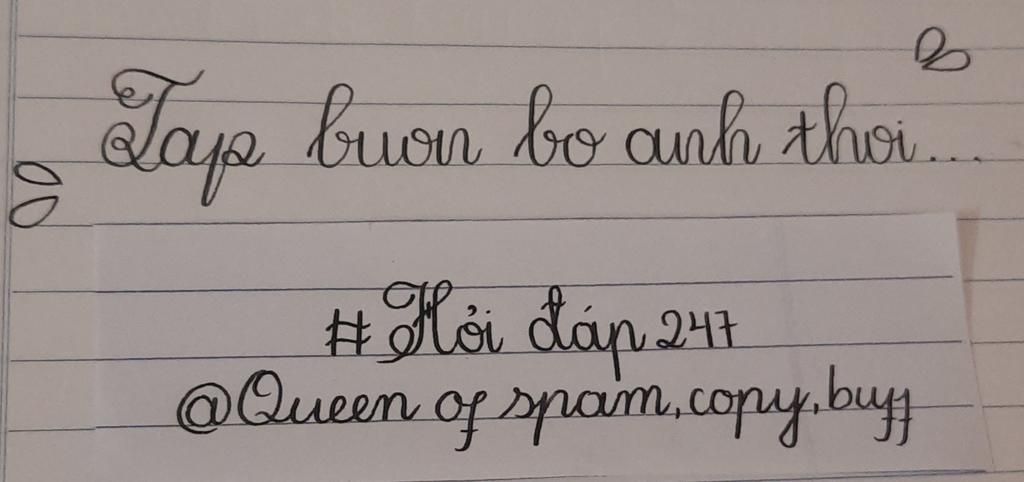 Taya buon bo anh thoi...
#Hỏi đáp 247
@Queen of spam,copy,buff